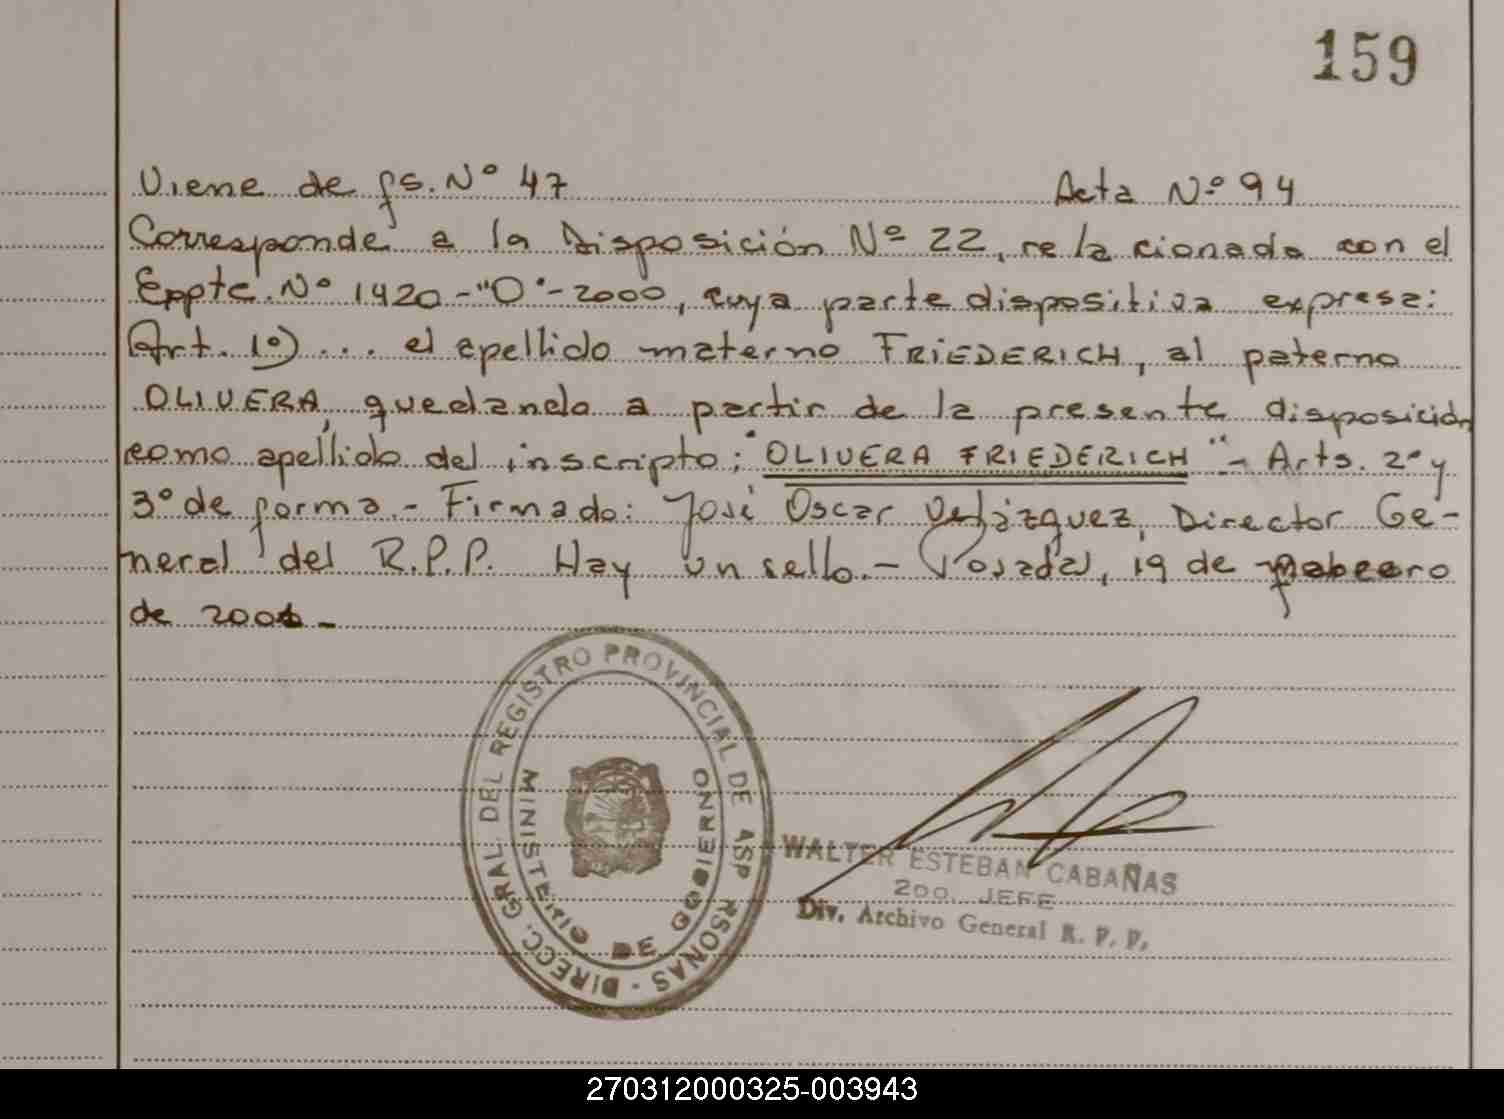 159
Viene de fs. Nº 47 Acta Nº 94
Corresponde a la Disposición Nº 22, relacionada con el
Eppte. Nº 1420-"O"-2000, cuya parte dispositiva expresa:
Art. 1º) ... el apellido materno FRIEDERICH, al paterno
OLIVERA, quedando a partir de la presente disposición
como apellido del inscripto: "OLIVERA FRIEDERICH"- Arts. 2º y
3º de forma.- Firmado: José Oscar Velázquez, Director Ge-
neral del R.P.P. Hay un sello.- Posadas, 19 de
de
DIRECC. GRAL. DEL REGISTRO PROVINCIAL DE
MINISTERIO DE GOBIERNO
WALTER ESTEBAN CABAÑAS
2DO. JEFE
Div. Archivo General R. P. P.
270312000325-003943